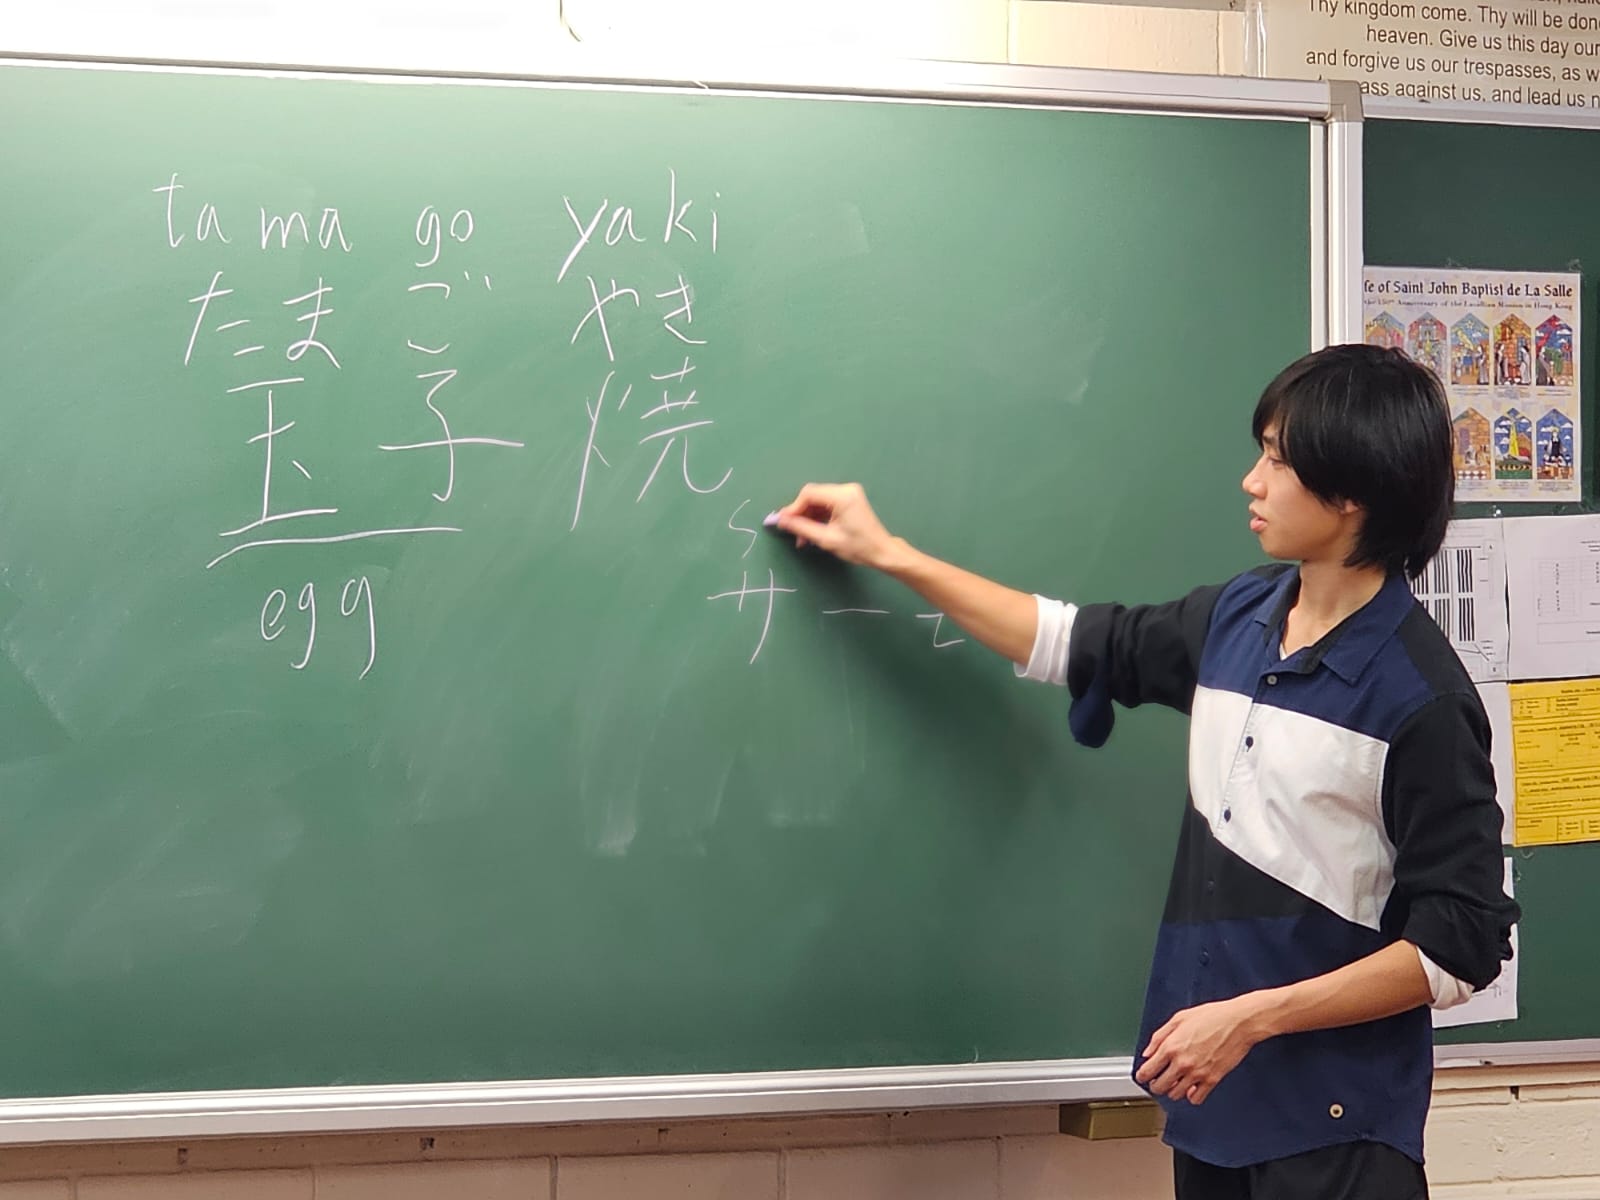 Thy kingdom come. Thy will be don
heaven. Give us this day our
and forgive us our trespasses, as w
ass against us, and lead us n
ta ma go yaki
たまご やき
玉子 焼
egg
s
サーモ
fe of Saint John Baptist de La Salle
the 150th Anniversary of the Lasallian Mission in Hong Kong